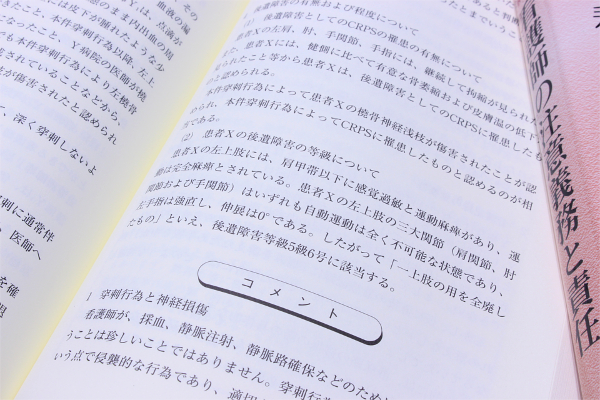 血液の漏
Y は、点滴が
のまま内出血の周
には皮下が腫れたような少
きたこと、本件穿刺行為以降、左上
たこと、Y病院の医師が橈
でも本件穿刺行為により左橈骨
されていることなどから、
が傷害されたと認められ
、深く穿刺しないよ
刺に通常伴
、医師へ
を確
障害の有無および程度について
後遺障害としてのCRPSの罹患の有無について
患者Xの左肩、肘、手関節、手指には、継続して拘縮が見られ
た、患者Xには、健側に比べて有意な骨萎縮および皮膚温の低下
られたこと等から患者Xは、後遺障害としてのCRPSに罹患したも
と認められる。
本件穿刺行為によって患者Xの橈骨神経浅枝が傷害されたことが認
められ、本件穿刺行為によってCRPSに罹患したものと認めるのが相
(2) 患者Xの後遺障害の等級について
患者Xの左上肢には、肩甲帯以下に感覚過敏と運動麻痺があり、運
動は完全麻痺とされている。患者Xの左上肢の三大関節（肩関節、肘
関節および手関節）はいずれも自動運動は全く不可能な状態であり、
左手指は強直し、伸展は0°である。したがって「一上肢の用を全廃し
たもの」といえ、後遺障害等級5級6号に該当する。
コメント
1 穿刺行為と神経損傷
看護師が、採血、静脈注射、静脈路確保などのため
うことは珍しいことではありません。穿刺行為
いう点で侵襲的な行為であり、適
看護師の注意義務と責任